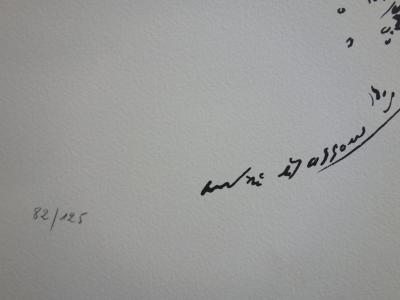 andré Masson
82/125